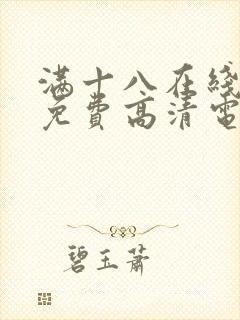 满十八在线
免费高清电
碧玉萧